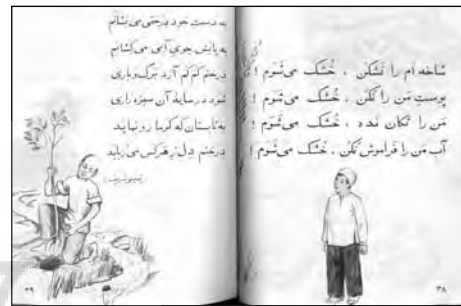 شاخه ام را نَشکَن ، خُشک می‌شَوم !
پوستِ مَن را نَکَن ، خُشک می‌شَوم !
مَن را تَکان نَده ، خُشک می‌شَوم !
آب مَن را فَراموش نَکُن ، خُشک می‌شَوم !
۳۸
به دستِ خود درختی می‌نشانم
به پایش جوی آبی می‌کشانم
درختم کم کم آرد برگ و باری
شود در سایهٔ آن سبزه زاری
به تابستان که گرما رو نماید
درختم دل ز هر کس می‌رباید
۳۹